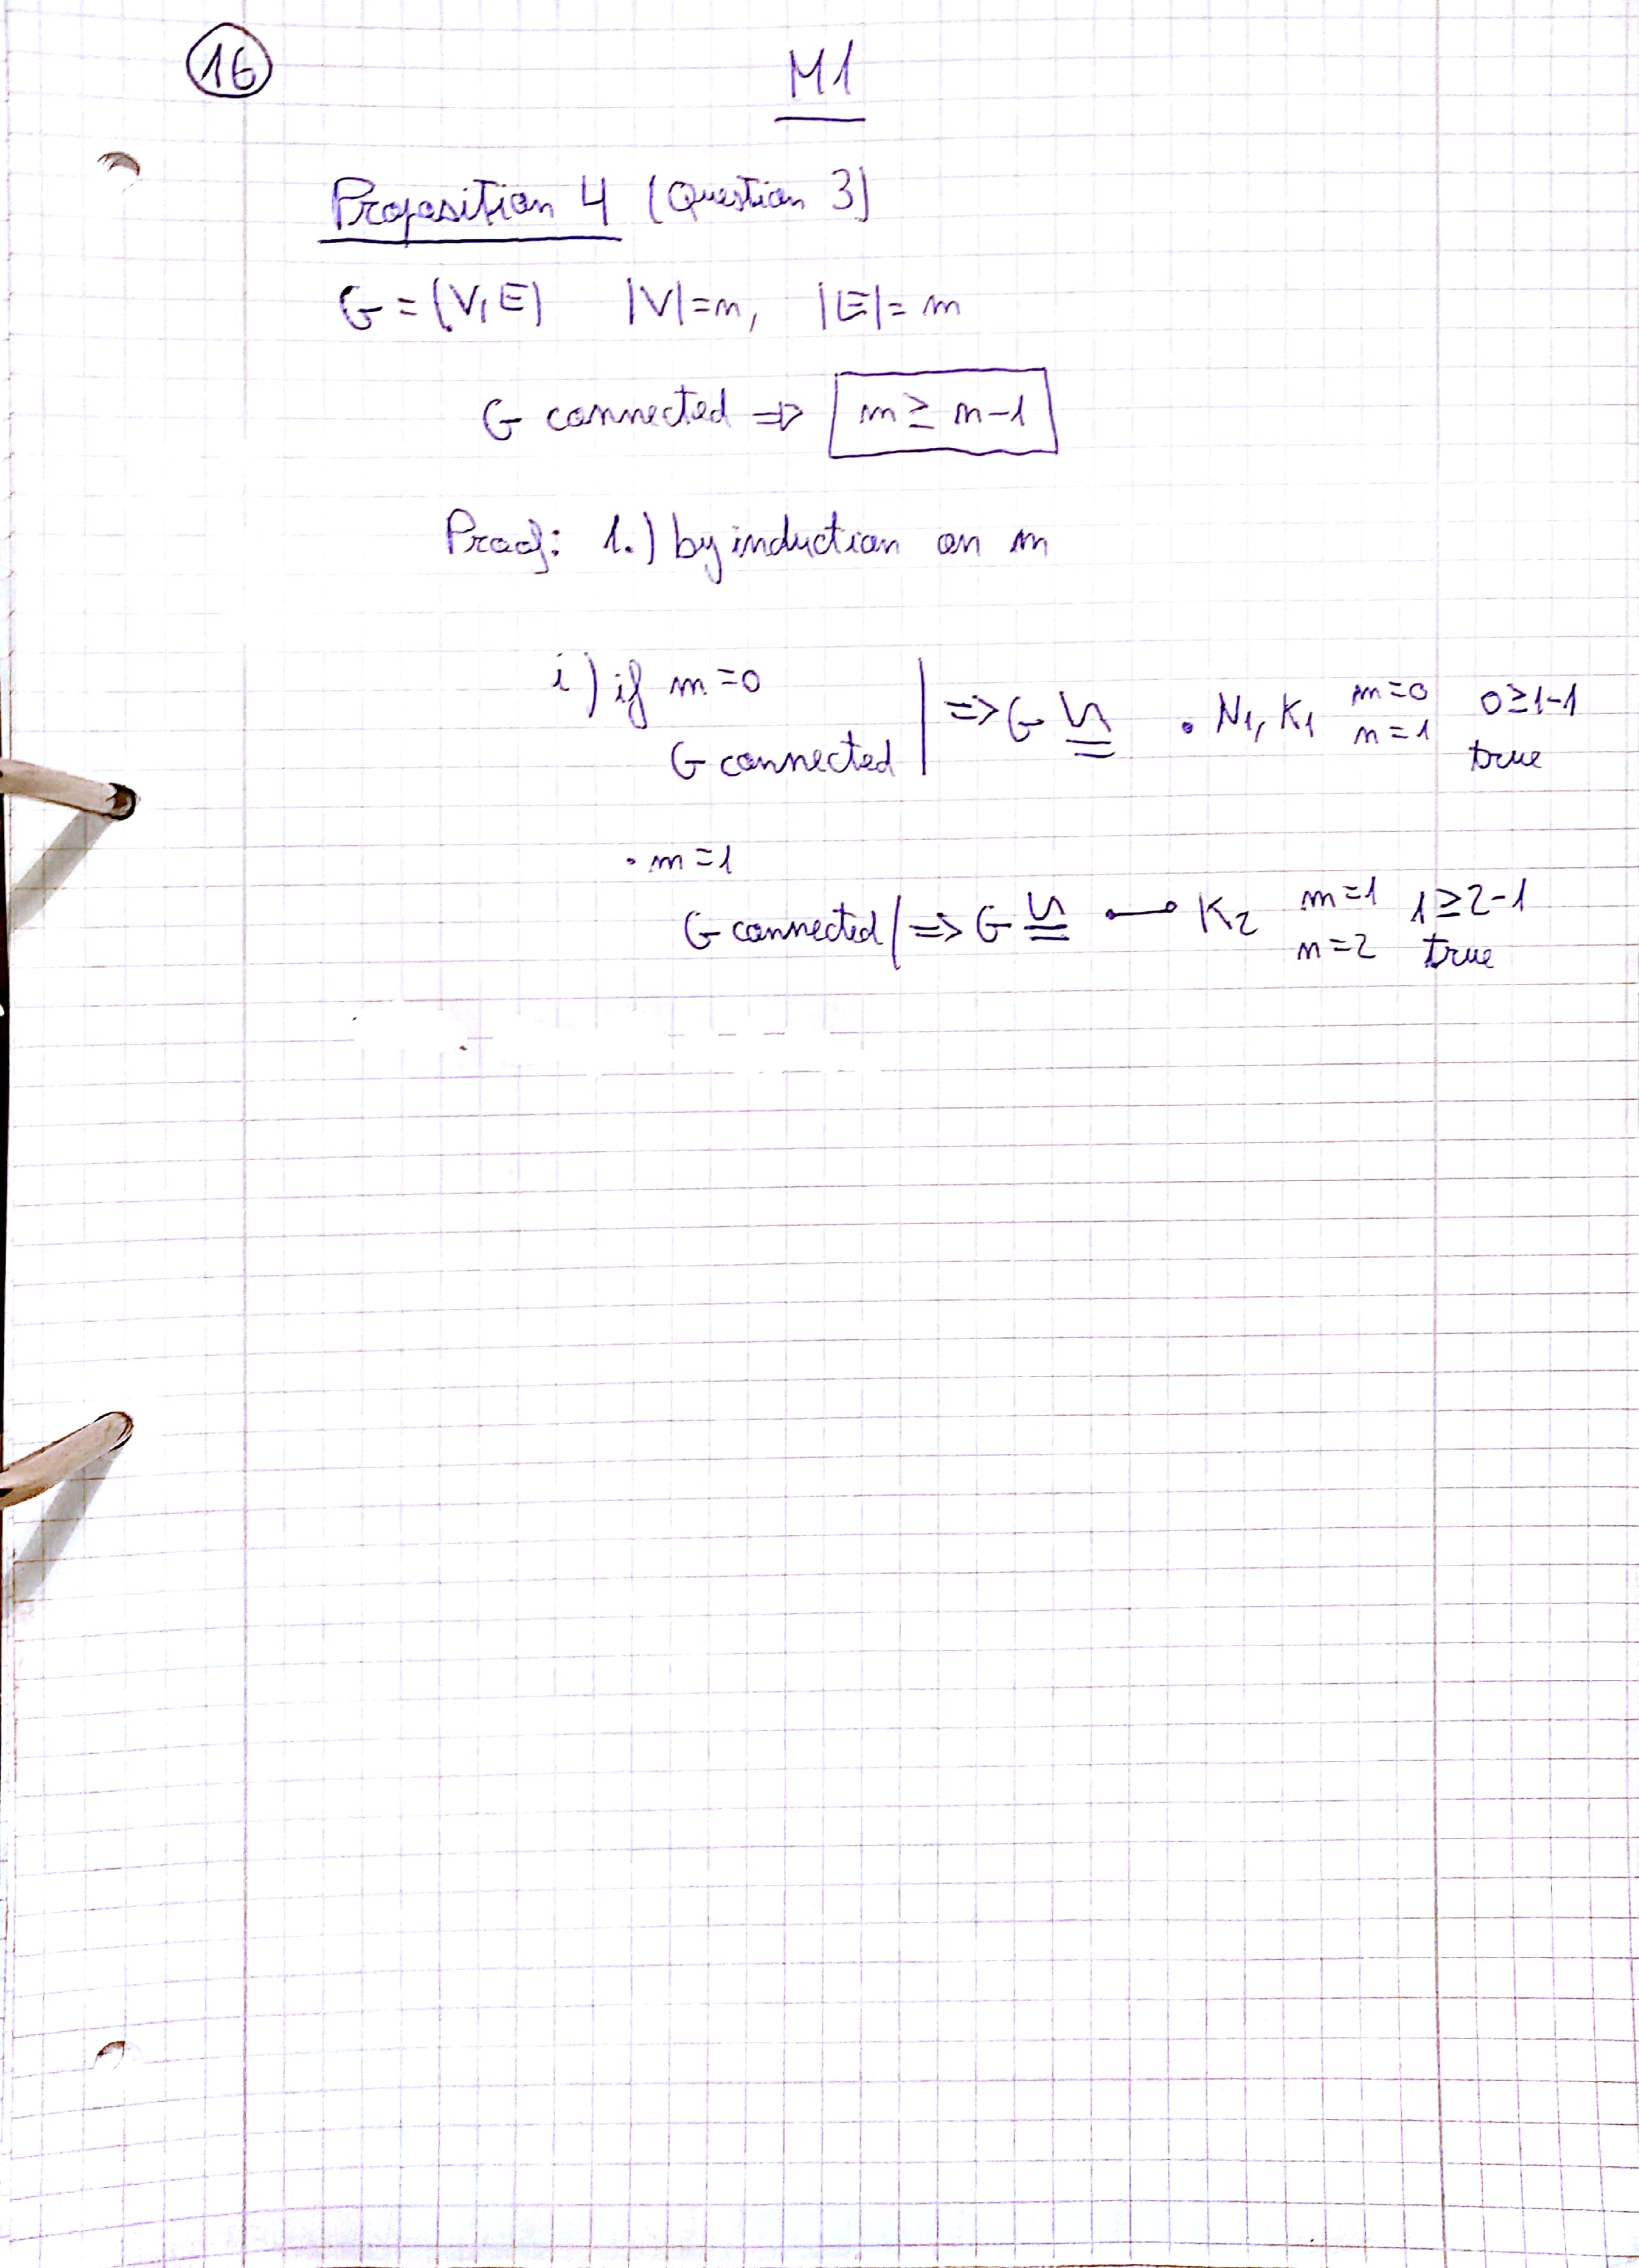 16
M1
Proposition 4 (Question 3)
G = (V, E) |V| = n, |E| = m
G connected => m ≥ n-1
Proof: 1.) by induction on m
i) if m = 0
G connected | => G ≅ • N1, K1 m=0 n=1 0 ≥ 1-1 true
• m = 1
G connected | => G ≅ K2 m=1 n=2 1 ≥ 2-1 true